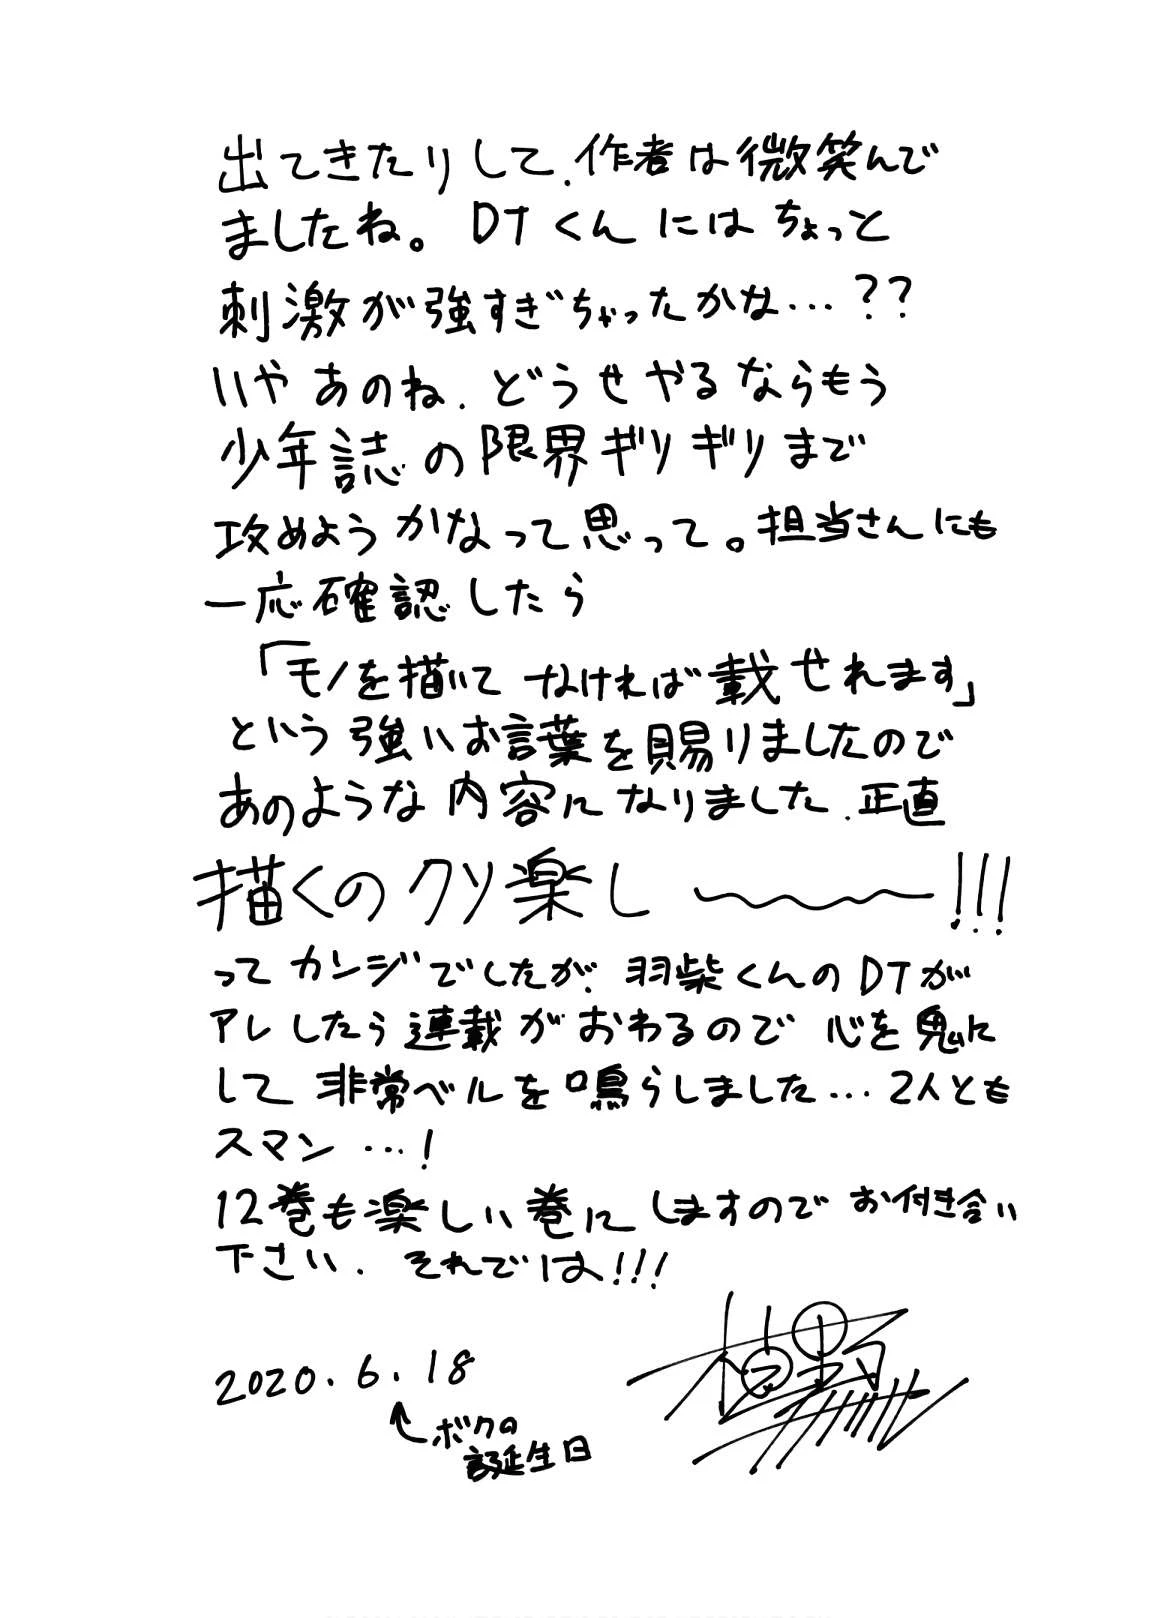 出てきたりして、作者は微笑んで
ましたね。DTくんにはちょっと
刺激が強すぎちゃったかな…??
いやあのね、どうせやるならもう
少年誌の限界ギリギリまで
攻めようかなって思って。担当さんにも
一応確認したら
「モノを描いてなければ載せれます」
という強いお言葉を賜りましたので
あのような内容になりました、正直
描くのクソ楽し〜!!!
ってカンジでしたが、羽柴くんのDTが
アレしたら連載がおわるので心を鬼に
して非常ベルを鳴らしました…2人とも
スマン…!
12巻も楽しい巻にしますのでお付き合い
下さい、それでは!!!
2020.6.18
ボクの
誕生日